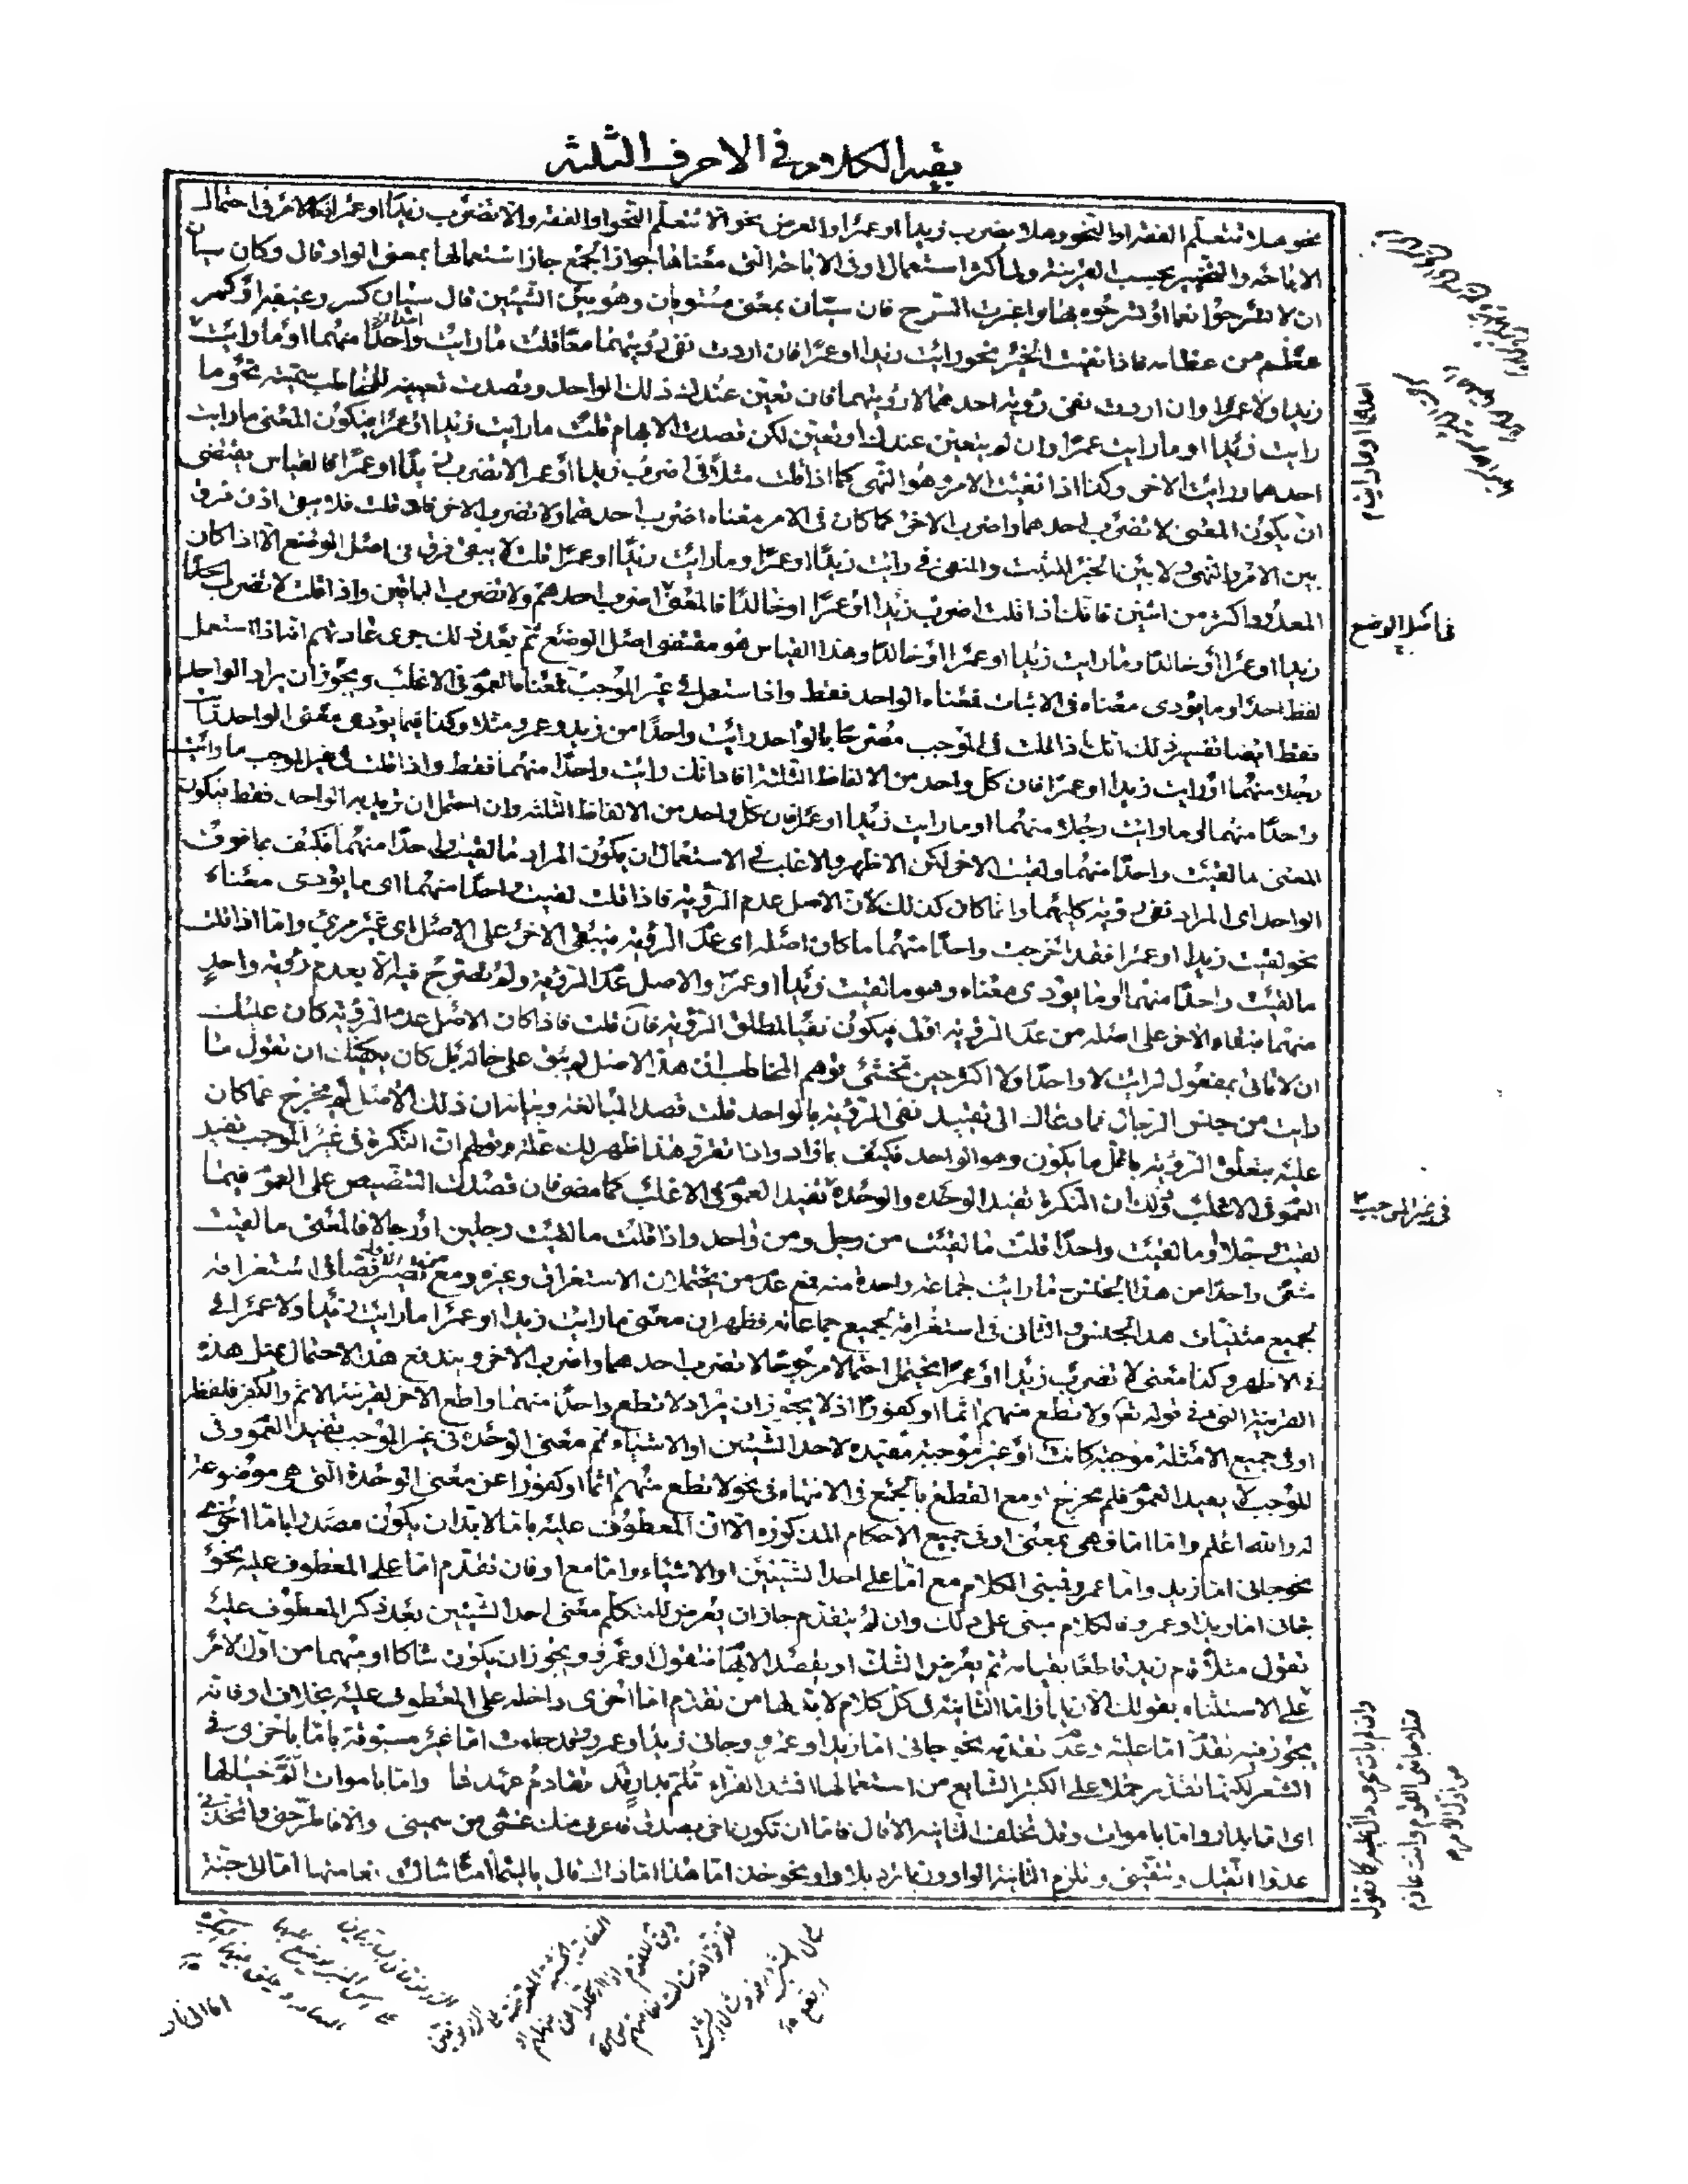 بقية الكلام في الاحرف الثلثة
نحو هلا تتعلم الفقه او النحو وهلا تضرب زيدا او عمرا والعرض نحو الا تتعلم النحو او الفقه والا تضرب زيدا او عمرا في احتمال
الاباحة والتخيير بحسب القرينة ولما كثر استعمال او في الاباحة التي معناها جواز الجمع جاز استعمالها بمعنى الواو قال وكان سيان
ان لا تسرحوا نعما او تسرحوه بها واغبرت السرح فان سيان بمعنى مستويان وهو بين الشيئين قال سيان كسر رغيفه او كسر
عظم من عظامه فاذا نفيت الخبر نحو رايت زيدا او عمرا فان اردت نفي رؤيتهما معا قلت ما رايت واحدا منهما او ما رايت
زيدا ولا عمرا وان اردت نفي رؤية احدهما لا رؤيتهما فان تعين عندك ذلك الواحد وقصدت تعيينه للمخاطب سميته نحو ما
رايت زيدا او ما رايت عمرا وان لم يتعين عندك او تعين لكن قصدت الابهام قلت ما رايت زيدا او عمرا فيكون المعنى ما رايت
احدهما ورايت الاخر وكذا اذا نفيت الامر وهو النهي كما اذا قلت مثلا في اضرب زيدا او عمرا لا تضرب زيدا او عمرا فالقياس يقتضي
ان يكون المعنى لا تضرب احدهما واضرب الاخر كما كان في الامر معناه اضرب احدهما ولا تضرب الاخر فان قلت فلا يبقى اذن فرق
بين الامر والنهي ولا بين الخبر المثبت والمنفي في رايت زيدا او عمرا وما رايت زيدا او عمرا قلت لا يبقى فرق في اصل الوضع الا اذا كان
المعدود اكثر من اثنين فانك اذا قلت اضرب زيدا او عمرا او خالدا فالمعنى اضرب احدهم ولا تضرب الباقين واذا قلت لا تضرب
زيدا او عمرا او خالدا وما رايت زيدا او عمرا او خالدا وهذا القياس هو مقتضى اصل الوضع ثم بعد ذلك جرى عادتهم انه اذا استعمل
لفظ احد او ما يؤدي معناه في الاثبات فمعناه الواحد فقط واذا استعمل في غير الموجب فمعناه العموم في الاغلب ويجوز ان يراد الواحد
فقط ايضا تفسير ذلك انك اذا قلت في الموجب مصرحا بالواحد رايت واحدا من زيد وعمرو مثلا وكذا فيما يؤدي معنى الواحد رايت
رجلا منهما او رايت زيدا او عمرا فان كل واحد من الالفاظ الثلثة افاد انك رايت واحدا منهما فقط واذا قلت في غير الموجب ما رايت
واحدا منهما او ما رايت رجلا منهما او ما رايت زيدا او عمرا فان كل واحد من الالفاظ الثلثة وان احتمل ان تريد به الواحد فقط فيكون
المعنى ما لقيت واحدا منهما ولقيت الاخر لكن الاظهر والاغلب في الاستعمال ان يكون المراد ما لقيت واحدا منهما فكيف بما فوق
الواحد اي المراد نفي رؤية كليهما وانما كان كذلك لان الاصل عدم الرؤية فاذا قلت لقيت واحدا منهما اي ما يؤدي معناه
نحو لقيت زيدا او عمرا فقد اخرجت واحدا منهما مما كان اصله اي عدم الرؤية فيبقى الاخر على الاصل اي غير مرئي واما اذا قلت
ما لقيت واحدا منهما او ما يؤدي معناه وهو ما لقيت زيدا او عمرا والاصل عدم الرؤية ولم تصرح فيه الا بعدم رؤية واحد
منهما فبقاء الاخر على اصله من عدم الرؤية اولى فيكون نفيا لمطلق الرؤية فان قلت فاذا كان الاصل عدم الرؤية كان عليك
ان لا تاتي بمفعول لرايت لا واحدا ولا اكثر حين تخشى توهم المخاطب ان هذا الاصل لم يبق على حاله بل كان يكفيك ان تقول ما
رايت من جنس الرجال فما دعاك الى تقييد نفي الرؤية بالواحد قلت قصد المبالغة وبيان ان ذلك الاصل لم يخرج عما كان
عليه بتعلق الرؤية باقل ما يكون وهو الواحد فكيف بما زاد واذا تقرر هذا ظهر لك علة قولهم ان النكرة في غير الموجب تفيد
العموم في الاغلب وذلك ان النكرة تفيد الوحدة والوحدة تفيد العموم في الاغلب كما مضى فان قصدت التنصيص على العموم فيما
لقيت رجلا وما لقيت واحدا قلت ما لقيت من رجل ومن واحد واذا قلت ما لقيت رجلين او رجالا فالمعنى ما لقيت
مثنى واحدا من هذا الجنس وما رايت جماعة واحدة منه فمع عدم من يحتملان الاستغراق وغيره ومع من يصير نصا في استغراقه
لجميع مثنيات هذا الجنس والثاني في استغراقه لجميع جماعاته فظهر ان معنى ما رايت زيدا او عمرا ما رايت زيدا ولا عمرا في
الاظهر وكذا معنى لا تضرب زيدا او عمرا يحتمل احتمالا مرجوحا لا تضرب احدهما واضرب الاخر ويندفع هذا الاحتمال بمثل هذه
القرينة التي في قوله تعالى ولا تطع منهم اثما او كفورا اذ لا يجوز ان يراد لا تطع واحدا منهما واطع الاخر لقرينة الاثم والكفر فلفظ
او في جميع الامثلة موجبة كانت او غير موجبة مفيدة لاحد الشيئين او الاشياء ثم معنى الوحدة في غير الموجب تفيد العموم وفي
الموجب لا يفيد العموم فلم تخرج او مع القطع بالجمع في الانتهاء في نحو لا تطع منهم اثما او كفورا عن معنى الوحدة التي هي موضوعة
له والله اعلم واما اما فهي بمعنى او في جميع الاحكام المذكورة الا ان المعطوف عليه باما لا بد ان يكون مصدرا باما اخرى
نحو جاءني اما زيد واما عمرو فبني الكلام مع اما على احد الشيئين او الاشياء واما مع او فان تقدم اما على المعطوف عليه نحو
جاءني اما زيد او عمرو فالكلام مبني على ذلك وان لم يتقدم جاز ان يعرض للمتكلم معنى احد الشيئين بعد ذكر المعطوف عليه
تقول مثلا قام زيد قاطعا بقيامه ثم يعرض الشك او يقصد الابهام فتقول او عمرو ويجوز ان يكون شاكا او مبهما من اول الامر
على الاستثناء بقولك الا زيدا واما الثانية في كل كلام لا بد لها من تقدم اما اخرى داخلة على المعطوف عليه بخلاف او فانه
يجوز فيه تقدم اما عليه وعدم تقدمه نحو جاءني اما زيد او عمرو وجاءني زيد او عمرو وقد جاءت اما غير مسبوقة باما اخرى في
الشعر لكنها تقدر حملا على الكثير الشايع من استعمالها انشد الفراء تلم بدار قد تقادم عهدها واما باموات الم خيالها
اي اما بدار واما باموات وقد تخلف الثانية الا قال فاما ان تكون اخي بصدق فاعرف منك غثي من سميني والا فاطرحني واتخذني
عدوا اتقيك وتتقيني وتلزم الثانية الواو وربما ترد بلا واو نحو خذ اما هذا اما ذاك قال يا ليتما امنا شالت نعامتها اما الى جنة
في اصل الوضع
في غير الموجب
اما الى نار